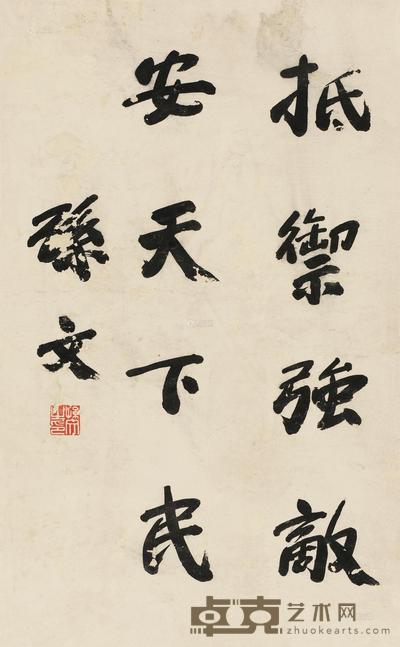 抵禦強敵
安天下民
孫文
卓克艺术网
zhuokearts.com